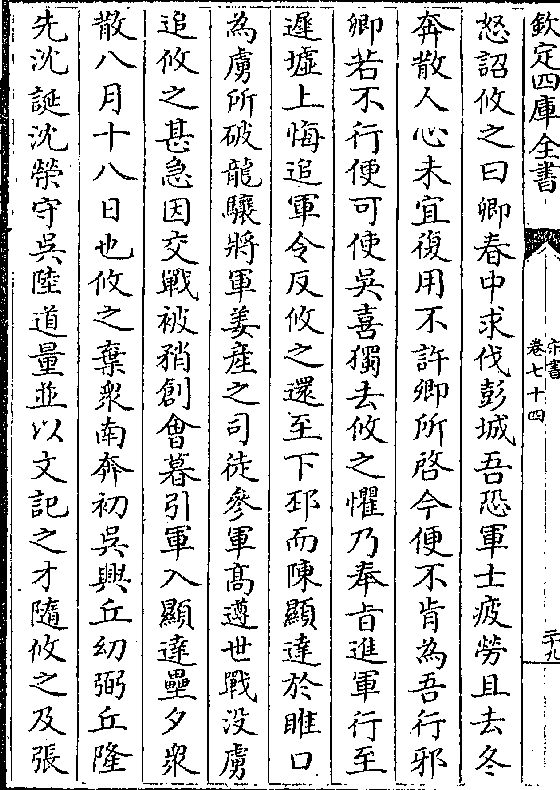 欽定四庫全書
宋書
卷七十四
二十九
怒詔攸之曰卿春中求伐彭城吾恐軍士疲勞且去冬
奔散人心未宜復用不許卿所啓今便不肯為吾行邪
卿若不行便可使吳喜獨去攸之懼乃奉旨進軍行至
遲墟上悔追軍令反攸之還至下邳而陳顯達於睢口
為虜所破龍驤將軍姜産之司徒參軍髙遵世戰没虜
追攸之甚急因交戰被矟創㑹暮引軍入顯達壘夕衆
散八月十八日也攸之棄衆南奔初吳興丘幼弼丘隆
先沈誕沈榮守吳陸道量並以文記之才隨攸之及張